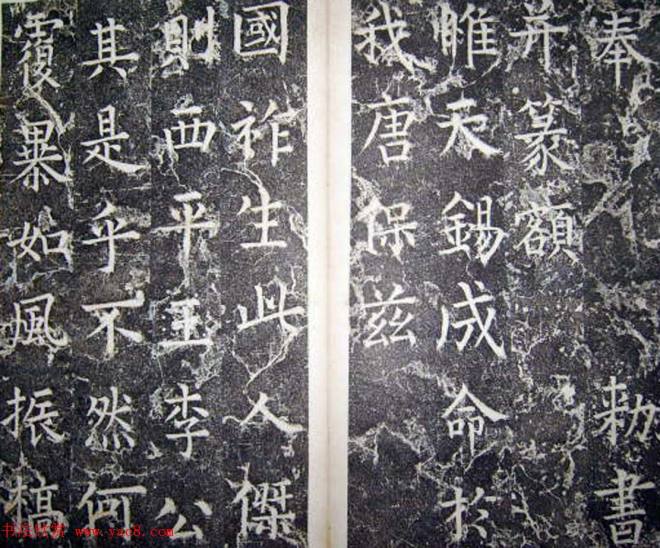 奉勅書
并篆額
唯天錫成命於
我唐保茲
國祚生此人傑
則西平王李公
其是乎不然何
覆暴如風振槁
书法欣赏 www.yac8.com